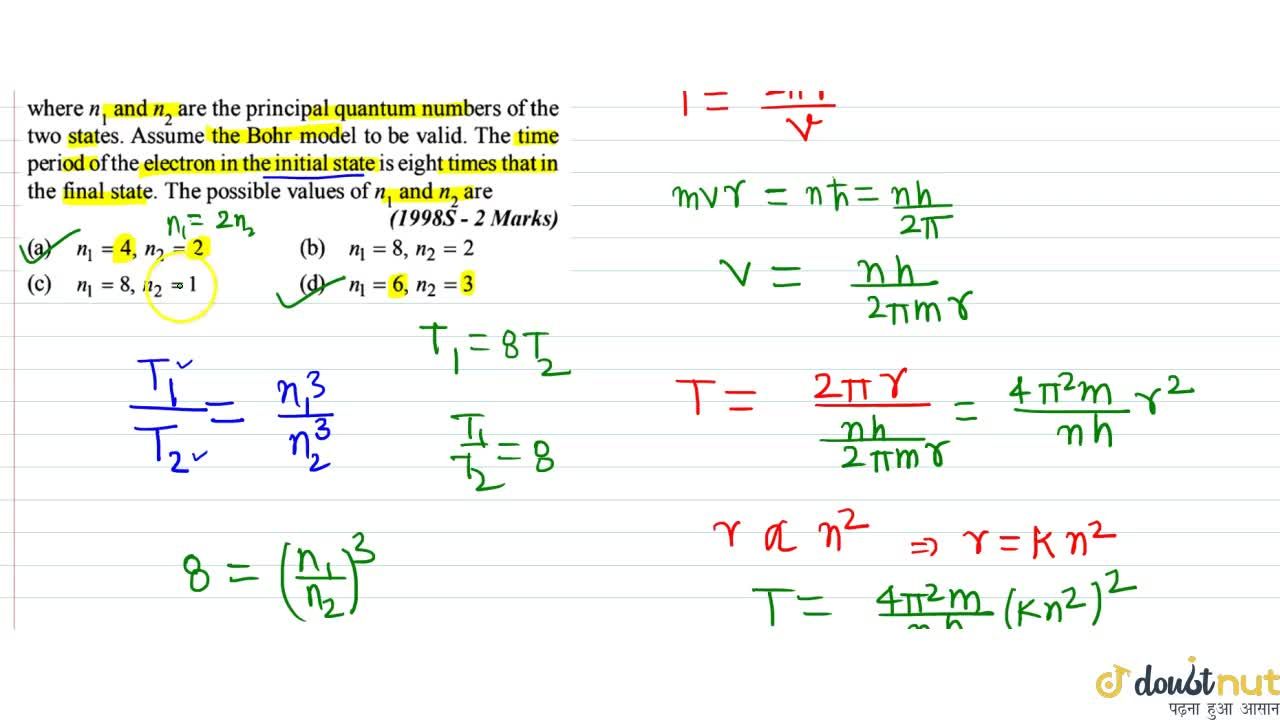 where n₁ and n₂ are the principal quantum numbers of the
two states. Assume the Bohr model to be valid. The time
period of the electron in the initial state is eight times that in
the final state. The possible values of n₁ and n₂ are
n₁ = 2n₂
(1998S - 2 Marks)
(a) n₁ = 4, n₂ = 2 (b) n₁ = 8, n₂ = 2
(c) n₁ = 8, n₂ = 1 (d) n₁ = 6, n₂ = 3
T₁ = 8T₂
T₁/T₂ = n₁³/n₂³
T₁/T₂ = 8
8 = (n₁/n₂)³
mvr = nħ = nh/2π
v = nh/2πmr
T = 2πr/(nh/2πmr) = 4π²m/nh r²
r α n² ⇒ r = Kn²
T = 4π²m/nh (Kn²)²
doubtnut
पढ़ना हुआ आसान